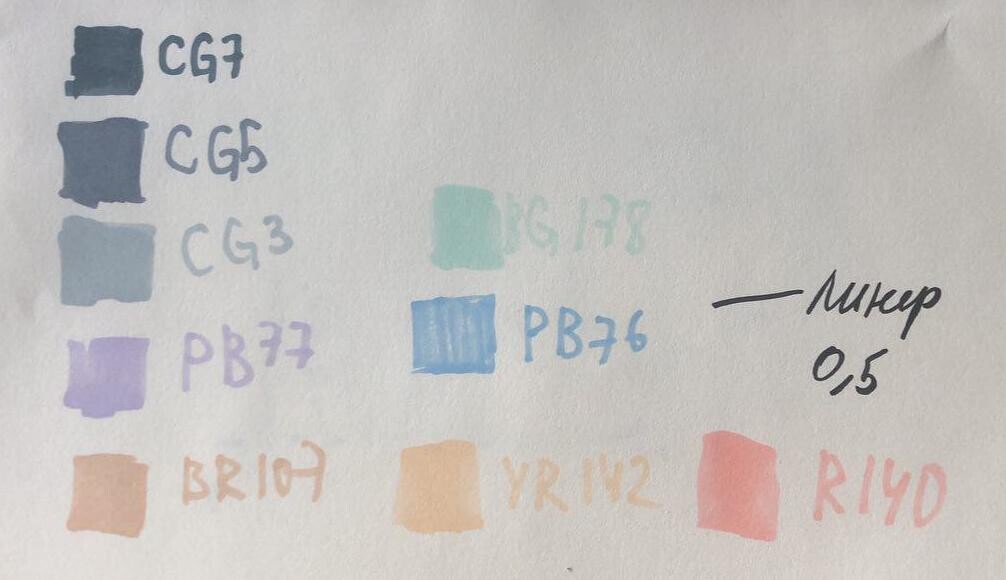 CG7
CG5
CG3
BG178
PB77
PB76
Линер
0,5
BR107
YR142
R140